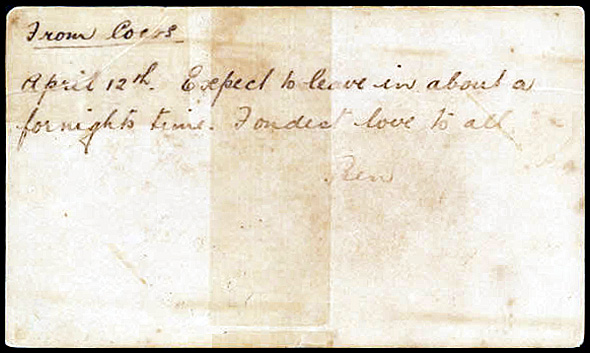 From Cocos
April 12th. Expect to leave in about a
fornights time. Fondest love to all